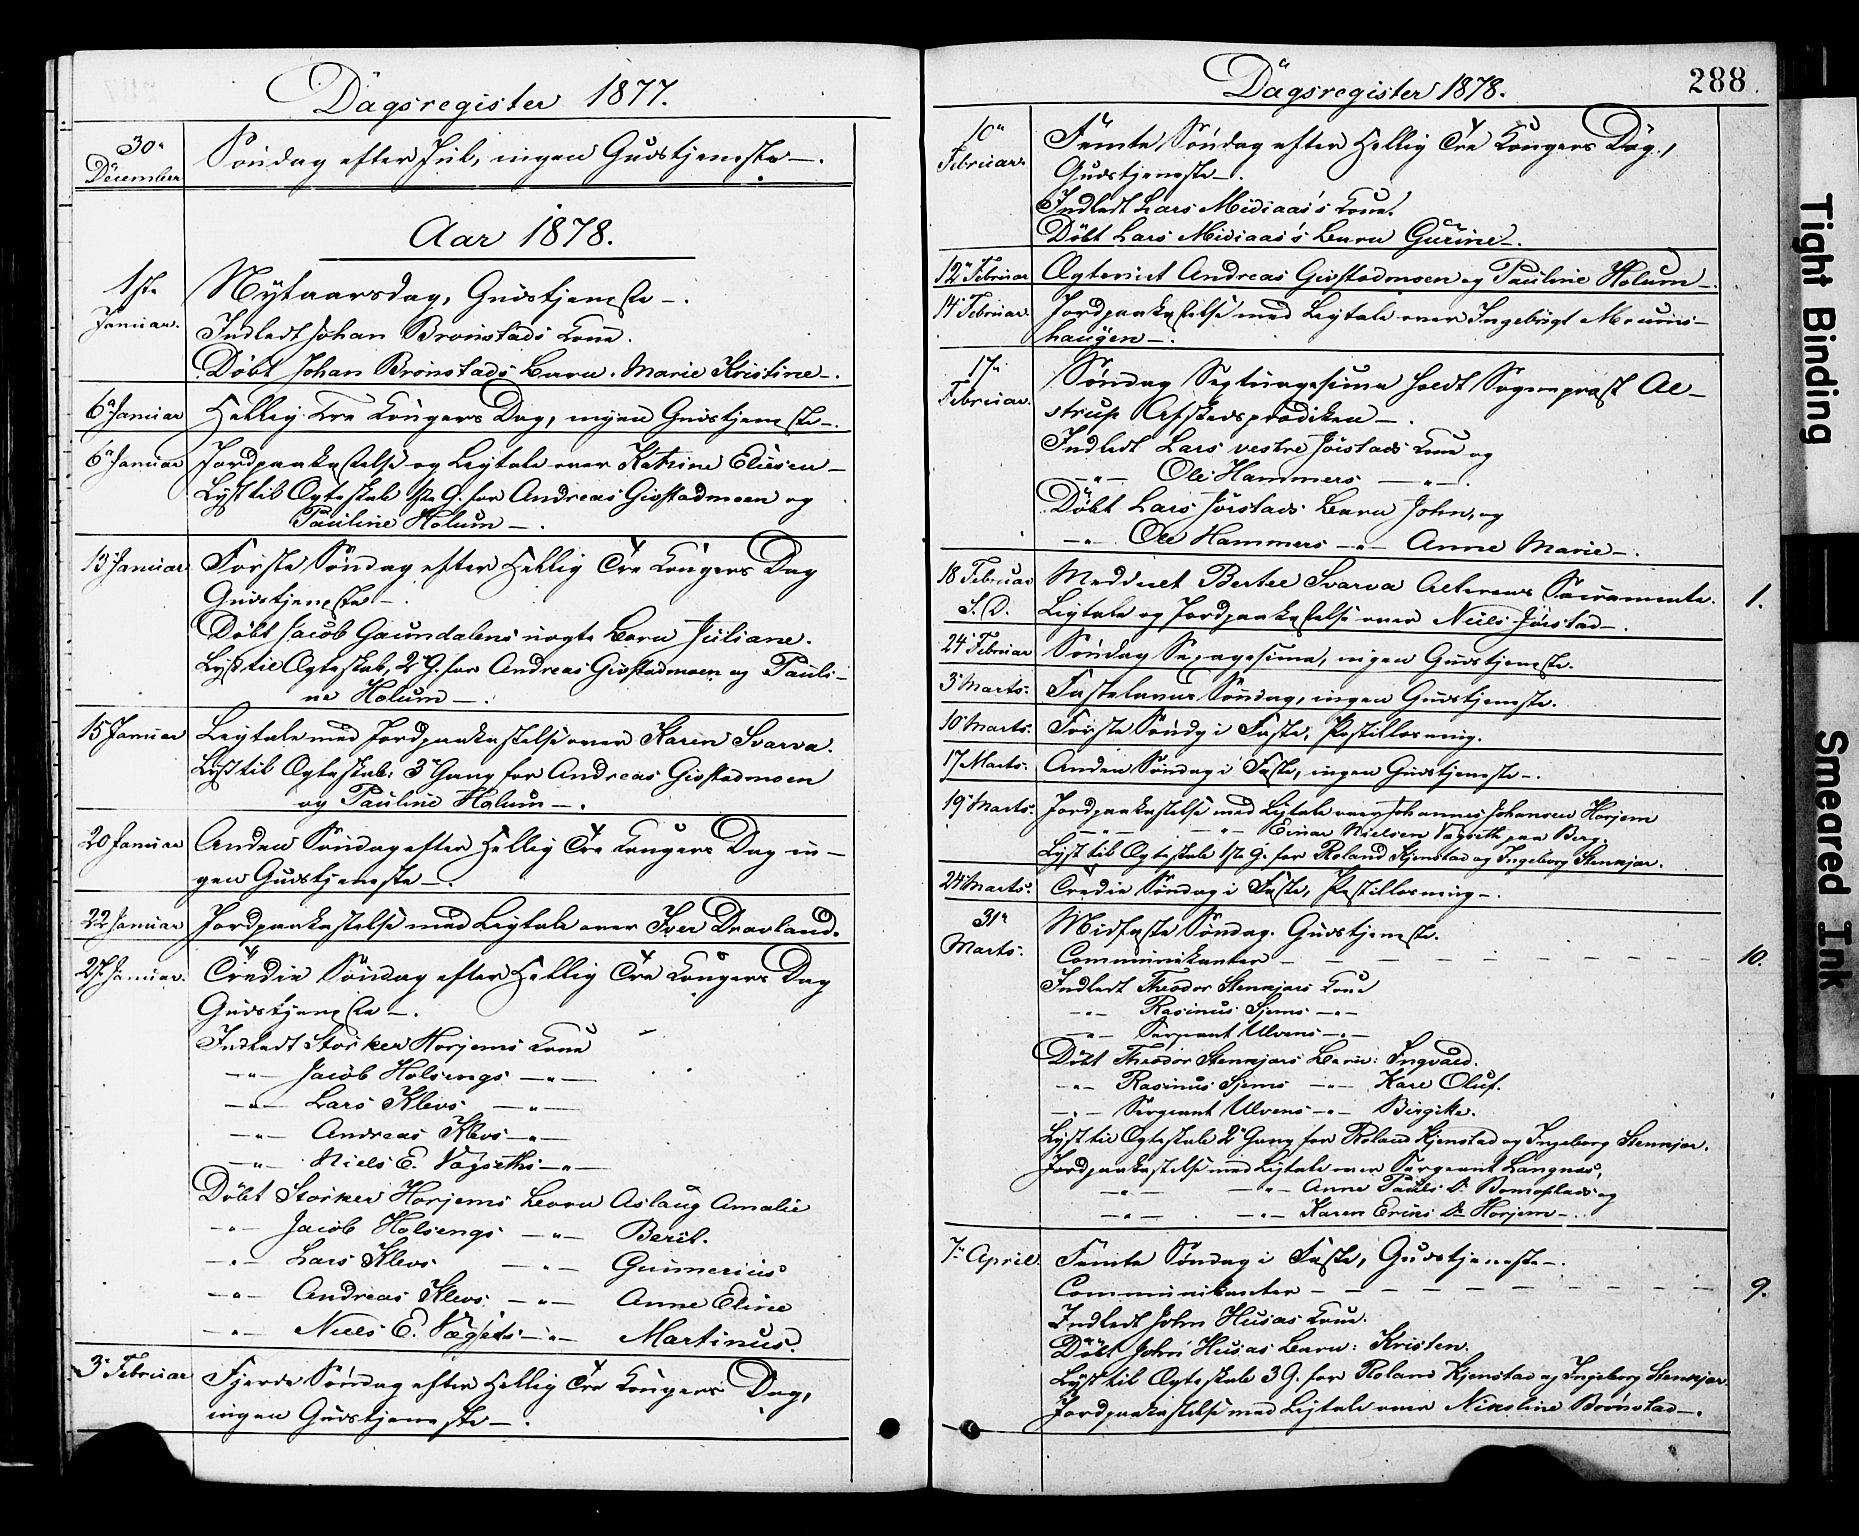 Dagsregister 1877.
30te
December
Søndag efter Jul, ingen Gudstjeneste.
Aar 1878.
1ste
Januar.
Nÿtaarsdag, Gudstjeneste.
Indledt Johan Brønstads Kone.
Døbt Johan Brønstads Barn. Marie Kristine.
6 Januar
Hellig Tre Kongers Dag, ingen Gudstjeneste.
6 Januar
Jordpaakastelse og Ligtale over Katrine Eliesen
Lÿst til Ægteskab 1ste G. for Andreas Gifstadmoen og
Pauline Holum.
13 Januar
Første Søndag efter Hellig Tre Kongers Dag
Gudstjeneste.
Døbt Jacob Gaundalens uægte Barn Juliane.
Lÿst til Ægteskab, 2 G. for Andreas Gifstadmoen og Pauli-
ne Holum.
15 Januar
Ligtale med Jordpaakastelse over Karen Svarva.
Lÿst til Ægteskab: 3 Gang for Andreas Gifstadmoen
og Pauline Holum.
20 Januar
Anden Søndag efter Hellig Tre Kongers Dag in-
gen Gudstjeneste.
22 Januar
Jordpaakastelse med Ligtale over Iver Dravland.
27 Januar.
Tredie Søndag efter Hellig Tre Kongers Dag
Gudstjeneste.
Indledt Storker Horjems Kone
-"- Jacob Holsengs -"-
-"- Lars Klevs -"-
-"- Andreas Klevs -"-
-"- Niels E. Vægseths -"-
Døbt Storker Horjems Barn Aslaug Amalie
-"- Jacob Holsengs -"- Beril.
-"- Lars Klevs -"- Gunnerius
-"- Andreas Klevs -"- Anne Eline
-"- Niels E. Vægsets -"- Martinus.
3 Februar
Fjerde Søndag efter Hellig Tre Kongers Dag,
ingen Gudstjeneste.
Dagsregister 1878.
288
10
Februar.
Femte Søndag efter Hellig Tre Kongers Dag.,
Gudstjeneste.
Indledt Lars Midiaas's Kone.
Døbt Lars Midiaas's Barn Gurine.
12 Februar
Ægteviet Andreas Gifstadmoen og Pauline Holum.
14 Februar.
Jordpaakastelse med Ligtale over Ingebrigt
haugen.
17
Februar.
Søndag Septuagesima holdt Sognepræst Al-
strup Afskedsprædiken.
Indledt Lars vestre Jørstads Kone og
-"- Ole Hammers -"-.
Døbt Lars Jørstads Barn John, og
-"- Ole Hammers -"- Anne Marie.
18 Februar
Meddeelt Bertel Svarva Alterens Sacramente.
1.
S. D.
Ligtale og Jordpaakastelse over Niels Jørstad.
24 Februar
Søndag Sexagesima, ingen Gudstjeneste.
3 Marts.
Fastelavns Søndag, ingen Gudstjeneste.
10 Marts.
Første Søndg i Faste, Postillæsning.
17 Marts.
Anden Søndag i Faste, ingen Gudstjeneste.
19 Marts.
Jordpaakastelse med Ligtale over Johannes Johansen Horjem
-"- -"- Einar Nielsen Vægseth paa Berg.
Lÿst til Ægteskab 1ste G. for Roland Kjenstad og Ingeborg Stennjar.
24 Marts.
Tredie Søndag i Faste, Postillæsning.
31
Marts.
Midfaste Søndag. Gudstjeneste.
Communikanter
10.
Indledt Theodor Stennjars Kone
-"- Rasmus Sjems -"-
-"- Sergeant Ulvens -"-
Døbt Theodor Stennjars Barn: Ingvald.
-"- Rasmus Sjems -"- Karl Oluf.
-"- Sergeant Ulvens -"- Birgitte.
Lÿst til Ægteskab 2 Gang for Roland Kjenstad og Ingeborg Stennjar.
Jordpaakastelse med Ligtale over Sergeant Langnæs,
-"- -"- Anne Pauls D. og
-"- -"- Karen Eriks D. Horjem.
7 April
Femte Søndag i Faste, Gudstjeneste.
Communikanter
9.
Indledt John Husas Kone.
Døbt John Husas Barn: Kristen.
Lÿst til Ægteskab 3 G. for Roland Kjenstad og Ingeborg Stennjar.
Jordpaakastelse med Ligtale over Nikoline Brønstad.
Tight Binding
Smeared Ink